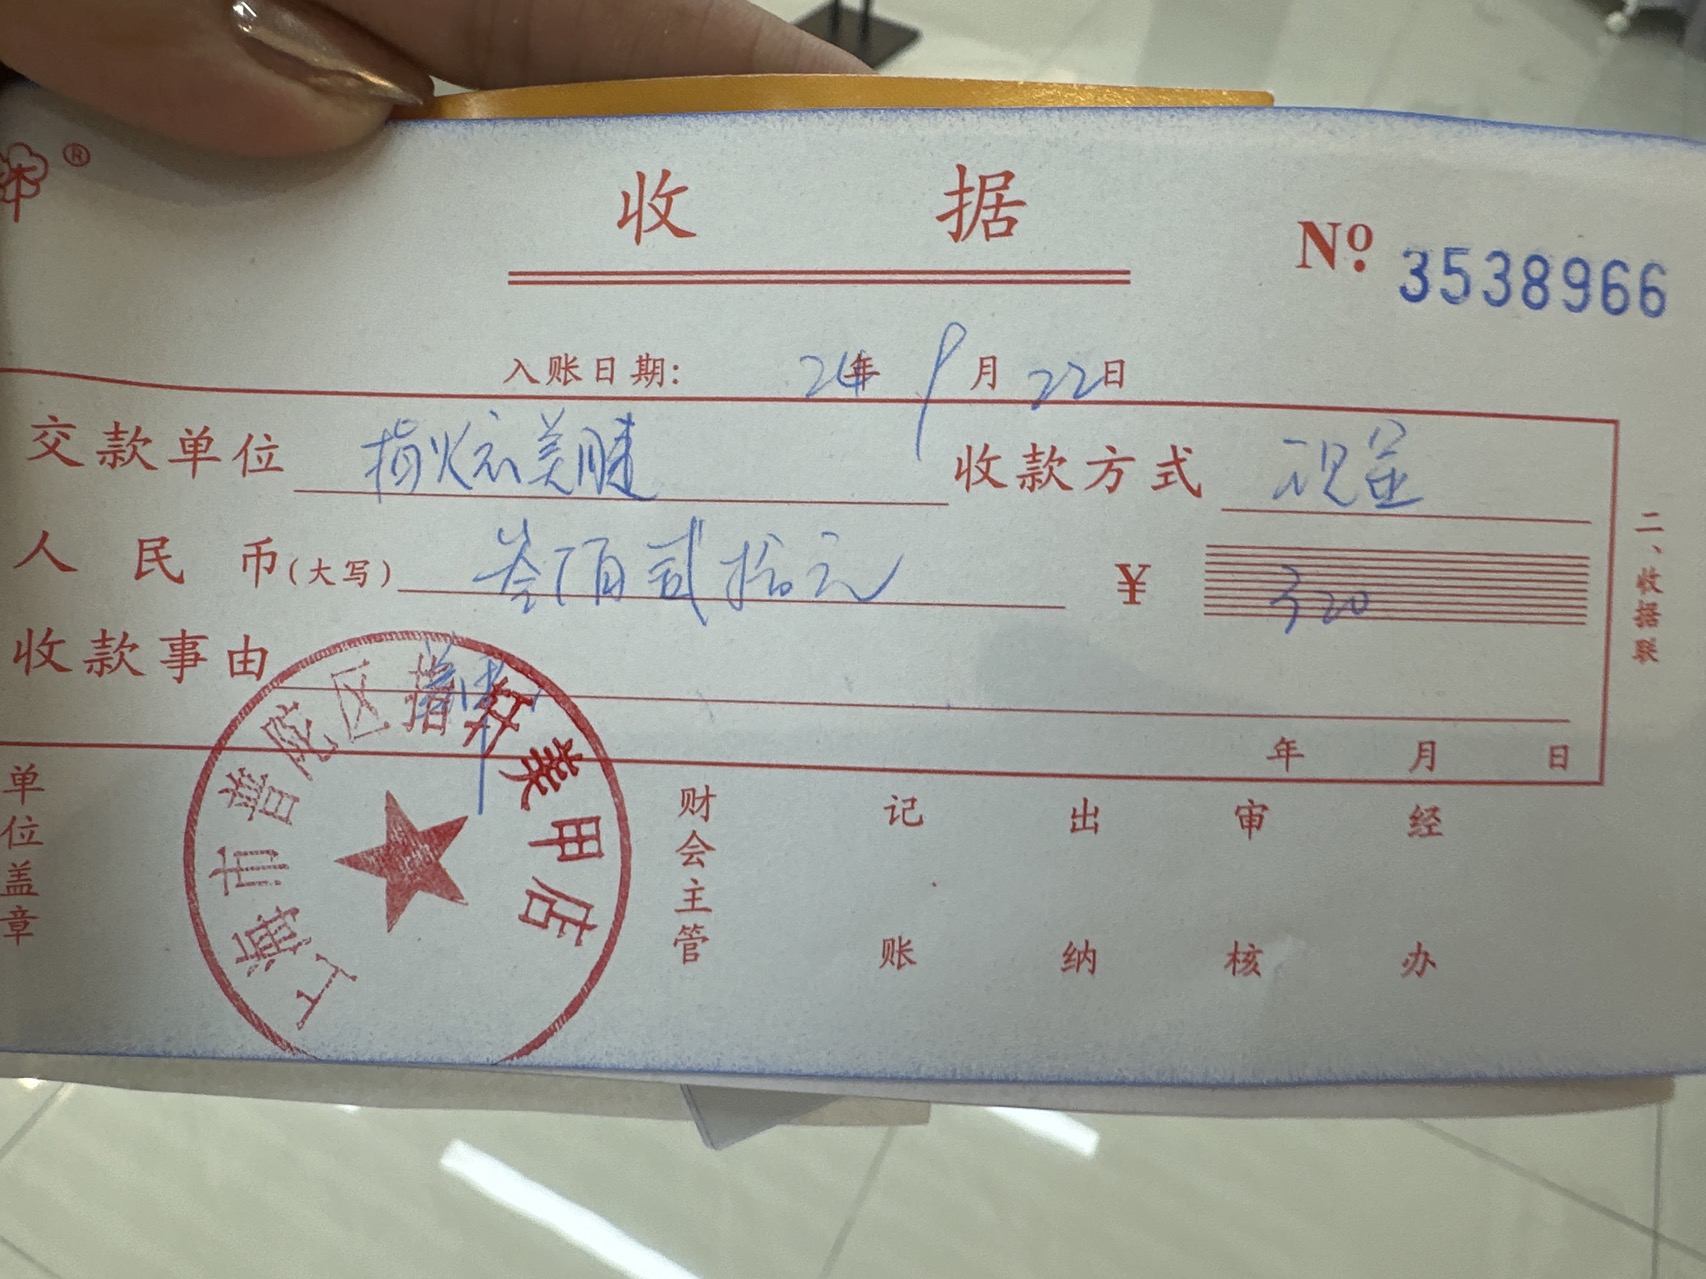 ®
收据
№ 3538966
入账日期: 24年 9月 22日
交款单位 指炫美睫 收款方式 现金
人民币(大写) 叁佰贰拾元 ¥ 320
收款事由
年 月 日
二、收据联
单位盖章 财会主管 记账 出纳 审核 经办
上海市普陀区指炫美甲店